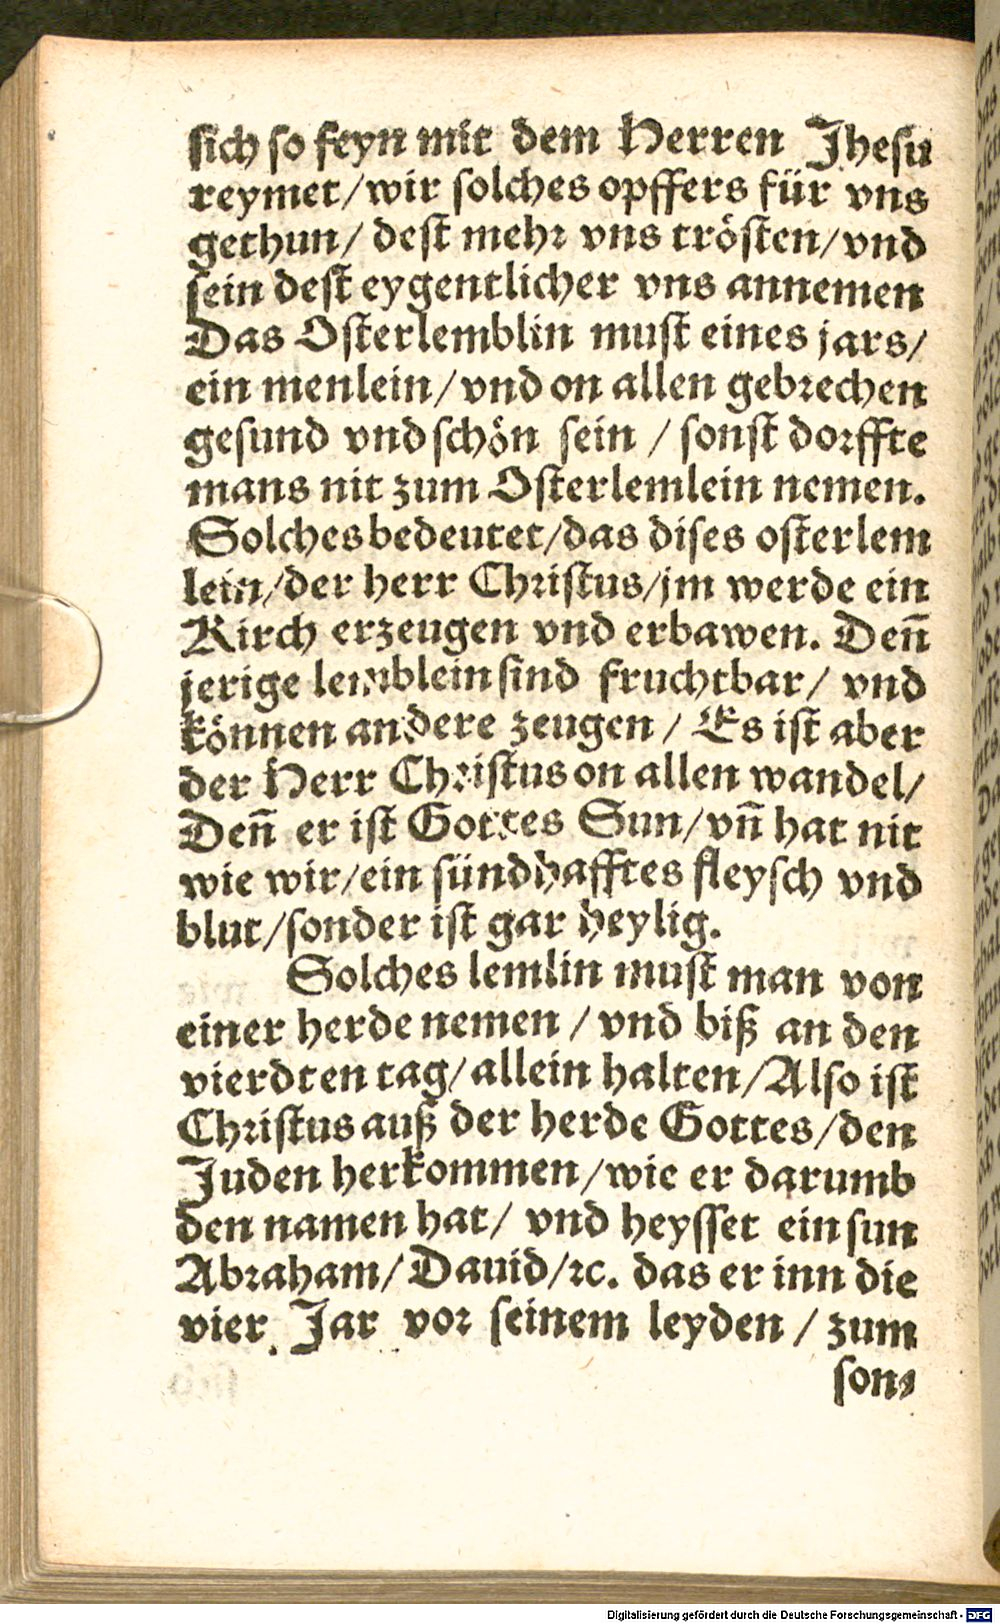 sich so feyn mit dem Herren Jhesu
reymet/wir solches opffers für vns
gethun/ dest mehr vns trösten/vnd
sein dest eygentlicher vns annemen
Das Osterlemblin must eines jars/
ein menlein/vnd on allen gebrechen
gesund vnd schön sein / sonst dorffte
mans nit zum Osterlemlein nemen.
Solches bedeutet/das dises osterlem
lein/der herr Christus/jm werde ein
Kirch erzeugen vnd erbawen. Deñ
jerige lemblein sind fruchtbar/ vnd
können andere zeugen / Es ist aber
der Herr Christus on allen wandel/
Deñ er ist Gottes Sun/vñ hat nit
wie wir/ein sündhafftes fleysch vnd
blut/sonder ist gar heylig.
Solches lemlin must man von
einer herde nemen / vnd biß an den
vierdten tag/allein halten/Also ist
Christus auß der herde Gottes/den
Juden herkommen/wie er darumb
den namen hat/ vnd heysset ein sun
Abraham/Dauid/ꝛc. das er inn die
vier Jar vor seinem leyden / zum
son⸗
Digitalisierung gefördert durch die Deutsche Forschungsgemeinschaft - DFG